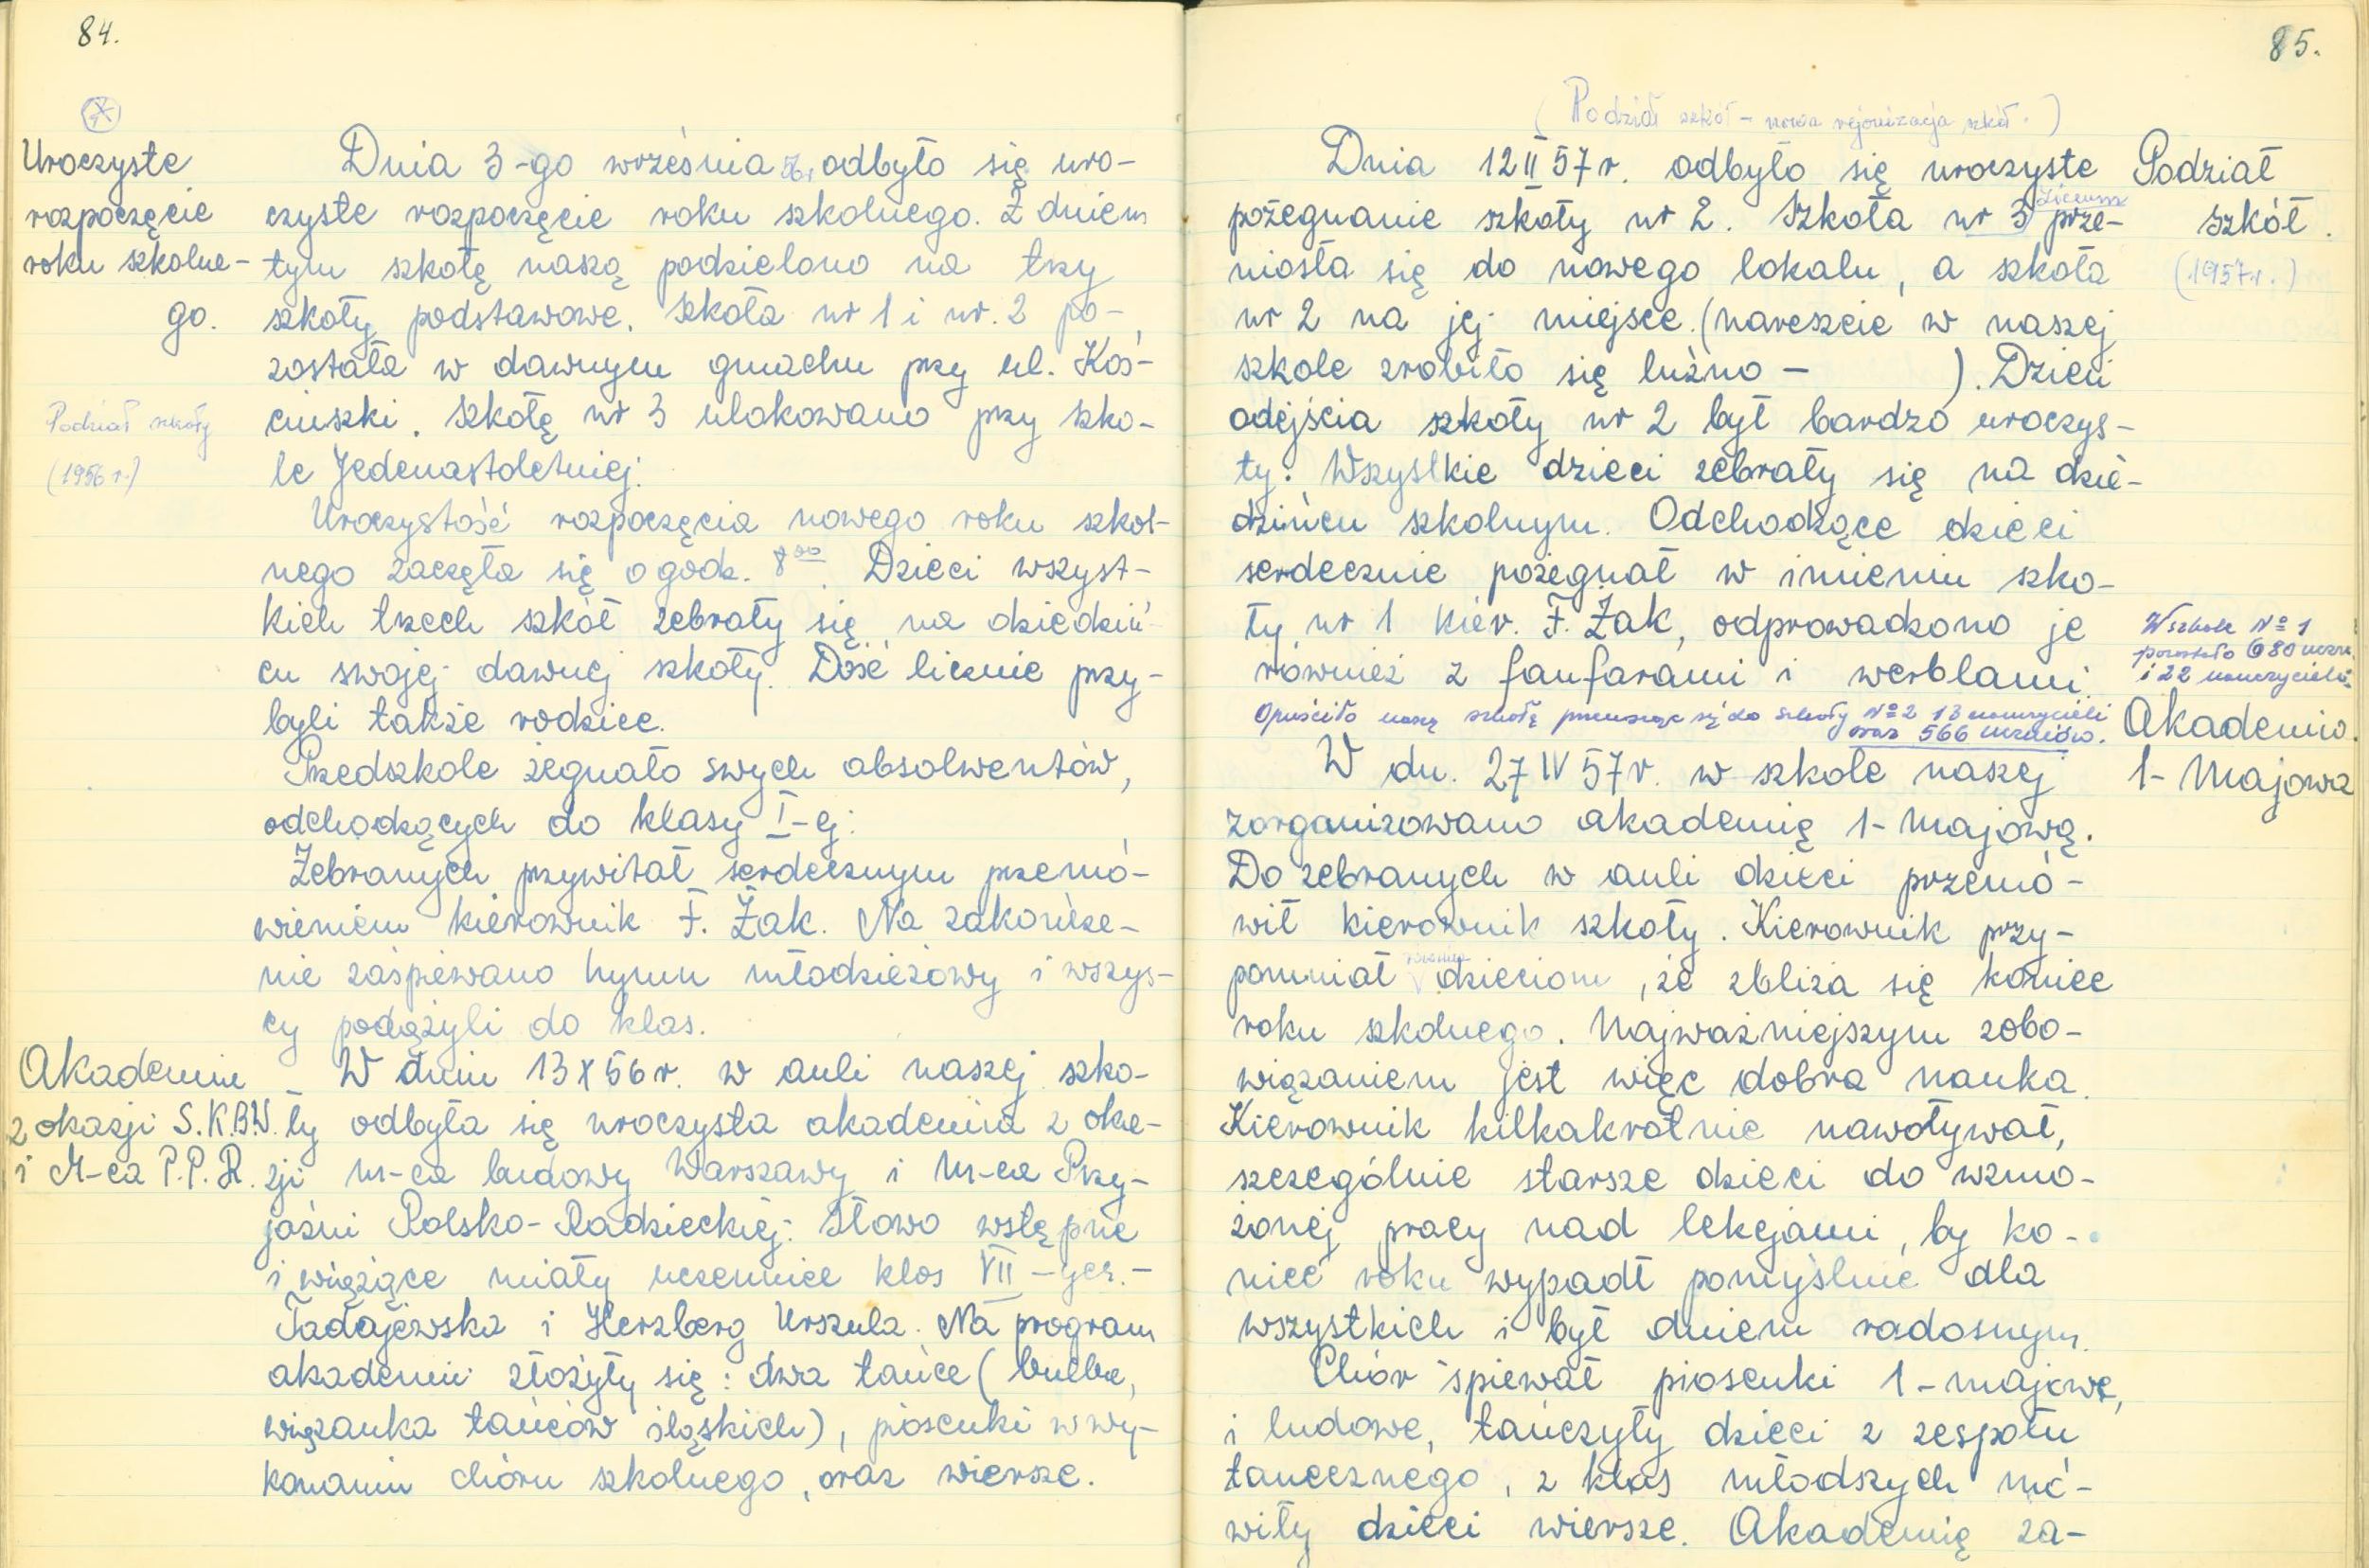 84.
Uroczyste
rozpoczęcie
roku szkolne-
go.
Podział szkoły
(1956 r.)
Dnia 3-go września 56r. odbyło się uro-
czyste rozpoczęcie roku szkolnego. Z dniem
tym szkołę naszą podzielono na trzy
szkoły podstawowe. Szkoła nr 1 i nr. 2 po-
została w dawnym gmachu przy ul. Koś-
ciuszki. Szkołę nr 3 ulokowano przy szko-
le Jedenastoletniej.
Uroczystość rozpoczęcia nowego roku szkol-
nego zaczęła się o godz. 8⁰⁰. Dzieci wszyst-
kich trzech szkół zebrały się na dziedziń-
cu swojej dawnej szkoły. Dość licznie przy-
byli także rodzice.
Przedszkole żegnało swych absolwentów,
odchodzących do klasy I-ej.
Zebranych przywitał serdecznym przemó-
wieniem kierownik F. Żak. Na zakończe-
nie zaśpiewano hymn młodzieżowy i wszys-
cy podążyli do klas.
Akademia
z okazji S.K.B.W.
i M-ca P.P.R.
W dniu 13 X 56 r. w auli naszej szko-
ły odbyła się uroczysta akademia z oka-
zji m-ca budowy Warszawy i m-ca Przy-
jaźni Polsko-Radzieckiej. Słowo wstępne
i wiążące miały uczennice klas VII-ych.-
Tadajewska i Herzberg Urszula. Na program
akademii złożyły się: dwa tańce (bulba,
wiązanka tańców śląskich), piosenki w wy-
konaniu chóru szkolnego, oraz wiersze.
85.
(Podział szkół - nowa rejonizacja szkół.)
Dnia 12 II 57 r. odbyło się uroczyste
pożegnanie szkoły nr 2. Szkoła nr 3 Liceum prze-
niosła się do nowego lokalu, a szkoła
nr 2 na jej miejsce. (nareszcie w naszej
szkole zrobiło się luźno - ). Dzień
odejścia szkoły nr 2 był bardzo uroczys-
ty. Wszystkie dzieci zebrały się na dzie-
dzińcu szkolnym. Odchodzące dzieci
serdecznie pożegnał w imieniu szko-
ły nr 1 kier. F. Żak, odprowadzono je
również z fanfarami i werblami.
Opuściło naszą szkołę przenosząc się do szkoły Nº 2 13 nauczycieli
oraz 566 uczniów.
Podział
szkół.
(1957 r.)
W szkole Nº 1
pozostało 680 uczn.
i 22 nauczycieli.
Akademia
1-Majowa
W dn. 27 IV 57 r. w szkole naszej
zorganizowano akademię 1-majową.
Do zebranych w auli dzieci przemó-
wił kierownik szkoły. Kierownik przy-
pomniał dzieciom, że zbliża się koniec
roku szkolnego. Najważniejszym zobo-
wiązaniem jest więc dobra nauka.
Kierownik kilkakrotnie nawoływał,
szczególnie starsze dzieci do wzmo-
żonej pracy nad lekcjami, by ko-
niec roku wypadł pomyślnie dla
wszystkich i był dniem radosnym.
Chór śpiewał piosenki 1-majowe,
i ludowe, tańczyły dzieci z zespołu
tanecznego, z klas młodszych mó-
wiły dzieci wiersze. Akademię za-